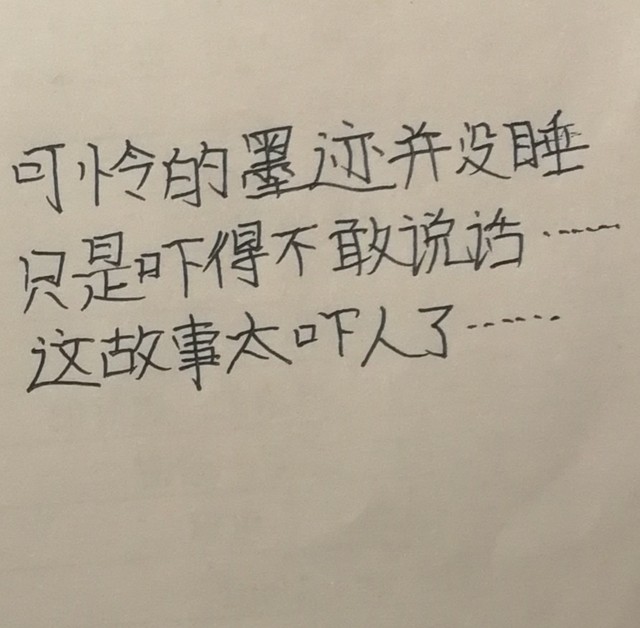 可怜的墨迹并没睡
只是吓得不敢说话……
这故事太吓人了……